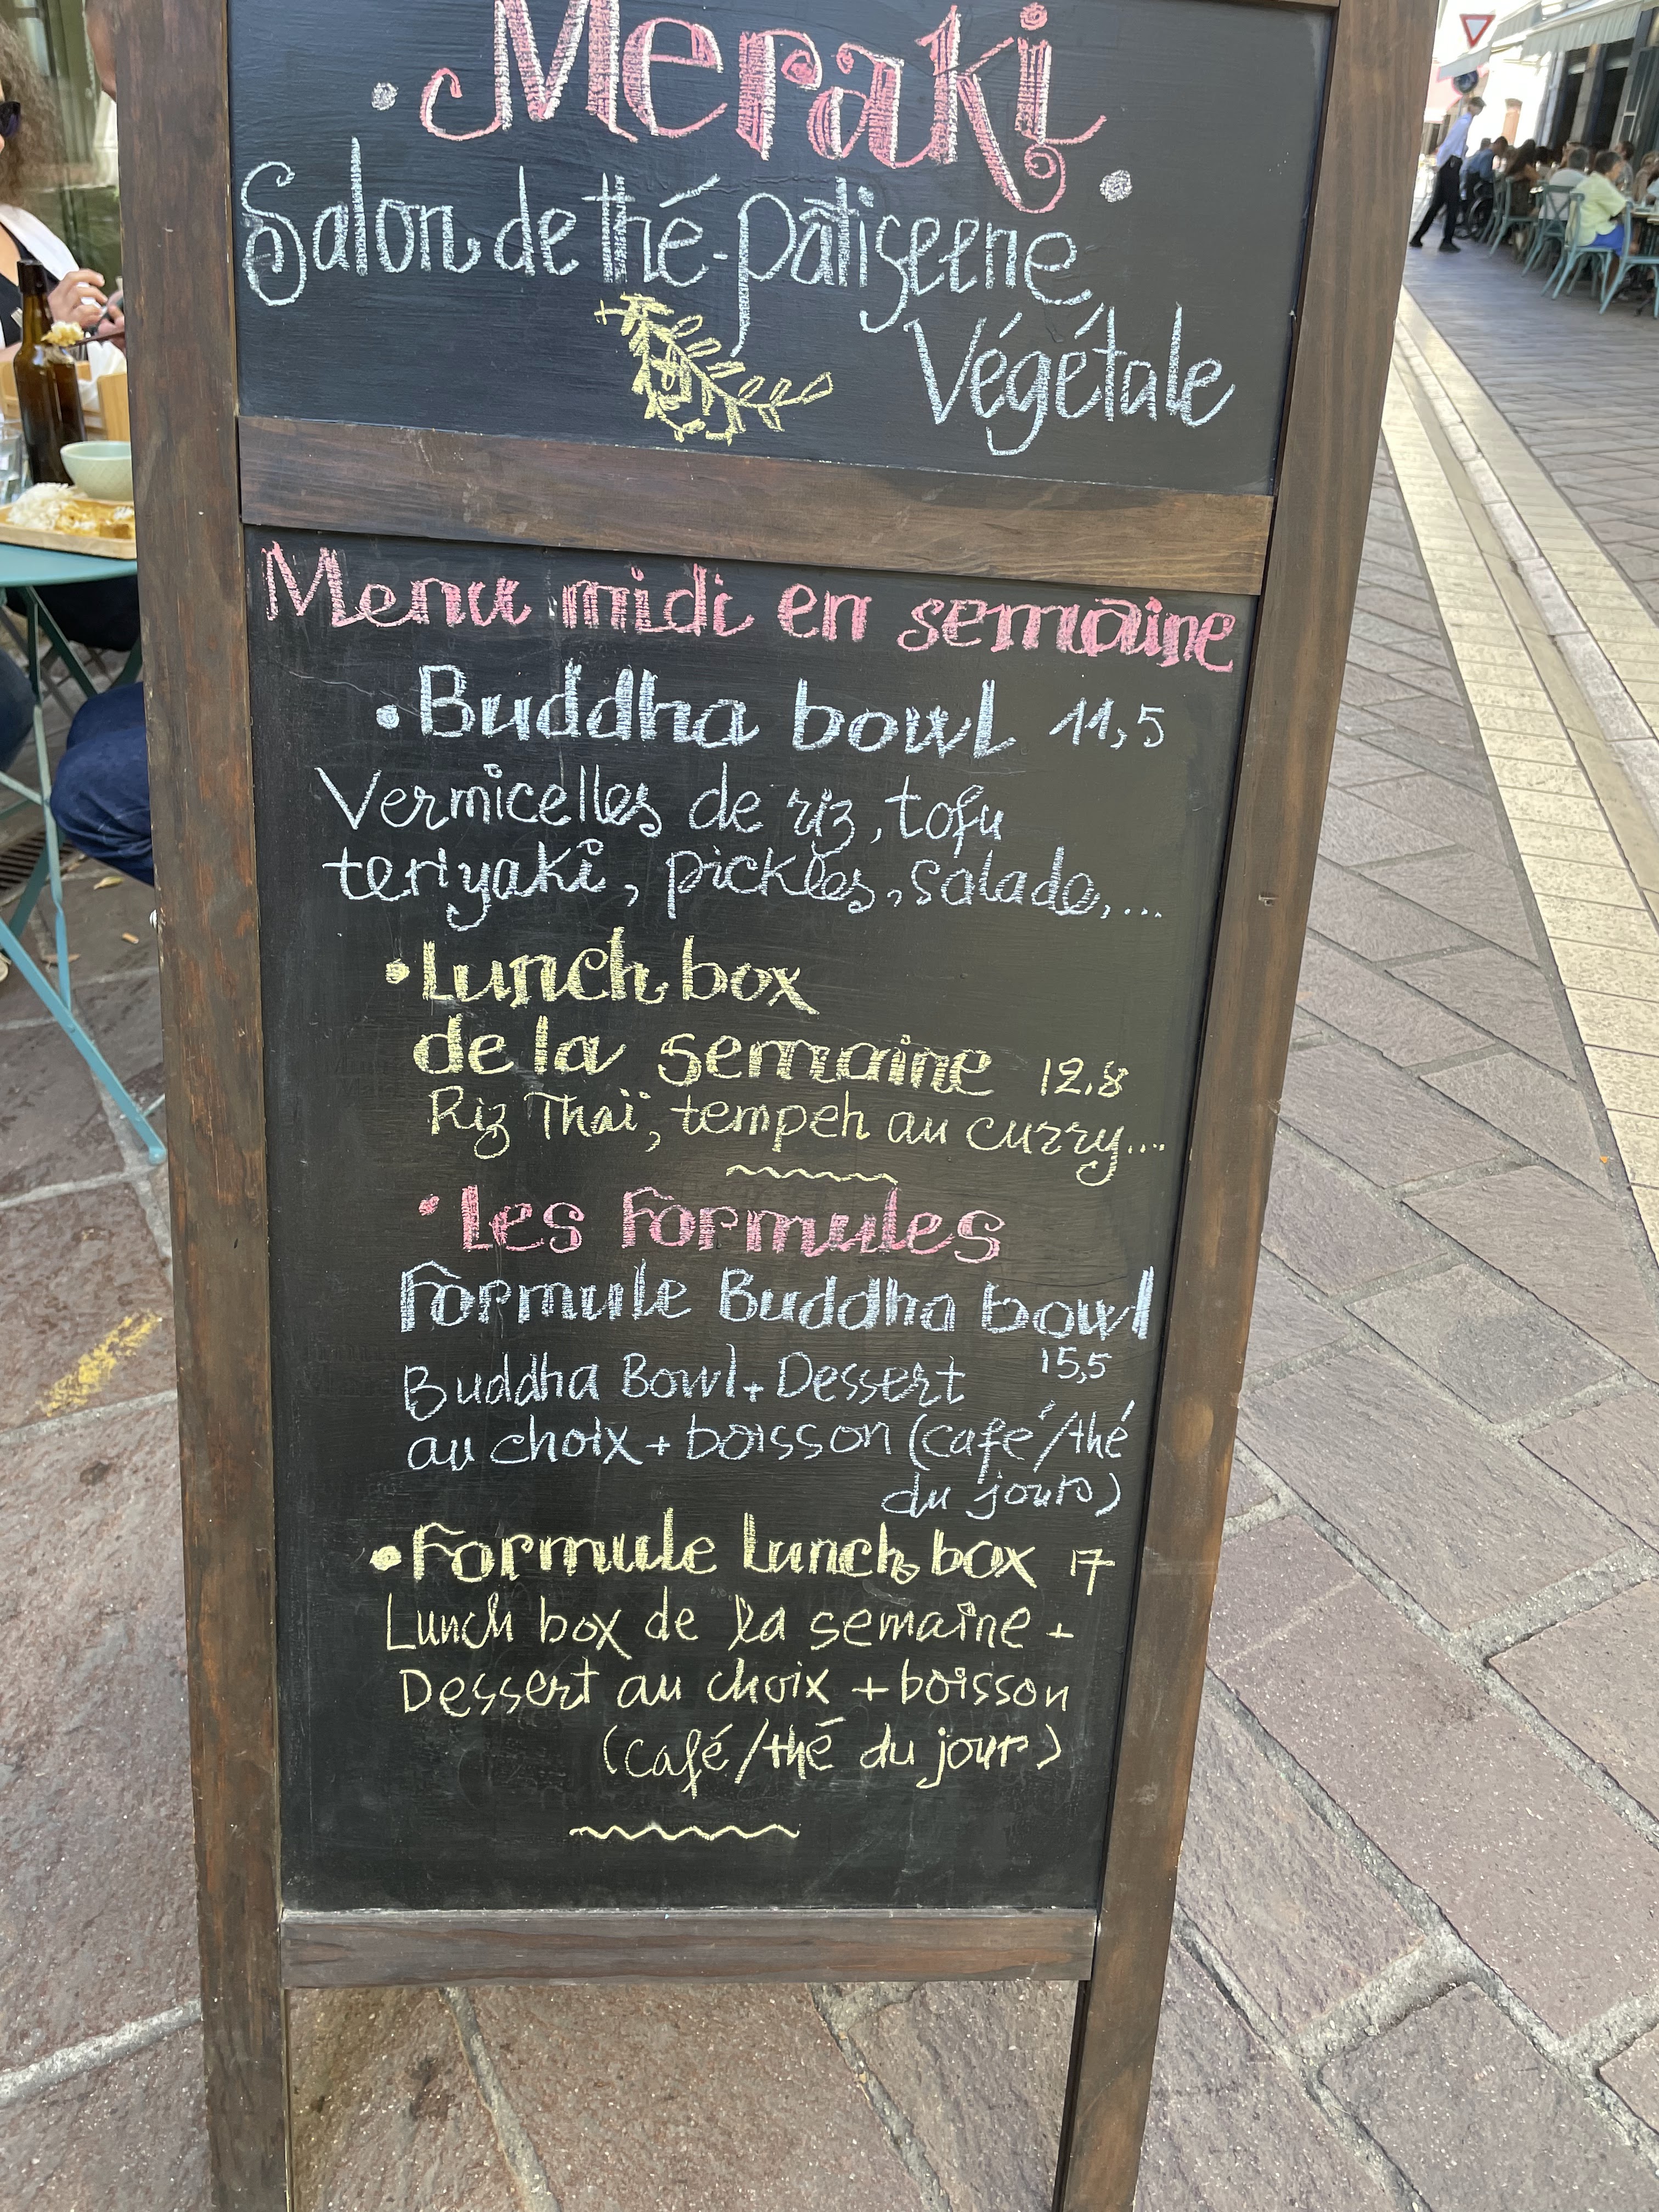 . Meraki .
Salon de thé - pâtisserie
Végétale
Menu midi en semaine
• Buddha bowl 11,5
Vermicelles de riz, tofu
teriyaki, pickles, salade,...
• Lunch box
de la semaine 12,8
Riz Thaï, tempeh au curry...
• Les formules
Formule Buddha bowl
15,5
Buddha Bowl + Dessert
au choix + boisson (café/thé
du jour)
• Formule Lunch box 17
Lunch box de la semaine +
Dessert au choix + boisson
(café/thé du jour)